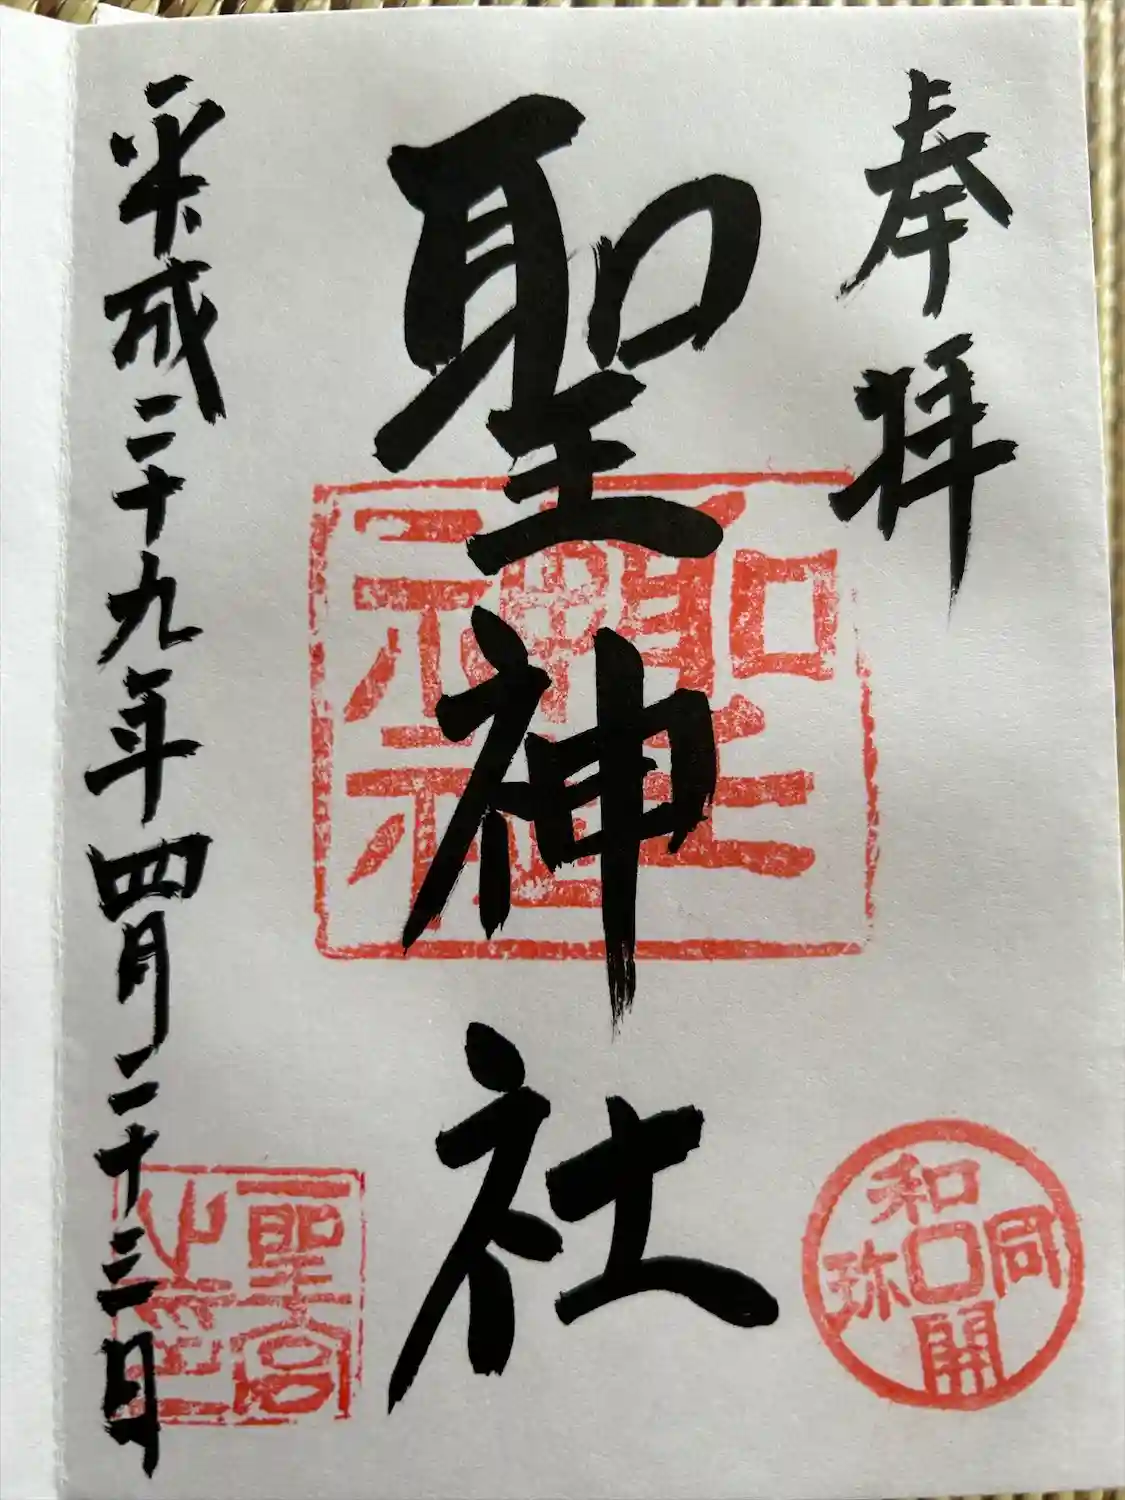 奉拝
聖神社
聖神社
和同開珎
平成二十九年四月二十三日